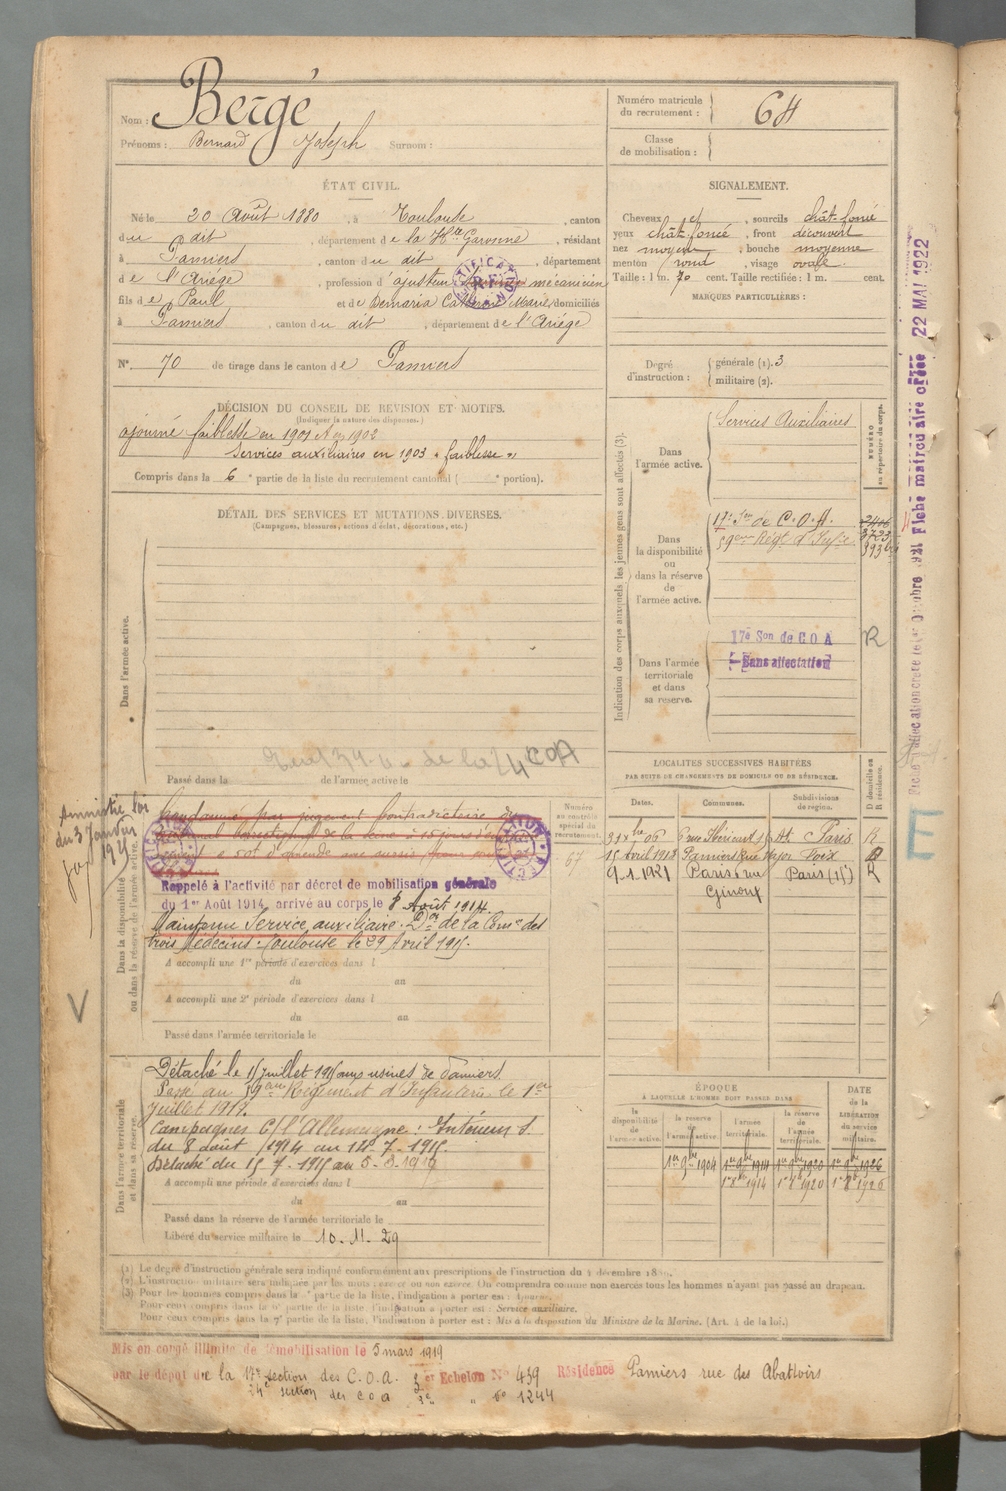 Nom : Bergé
Prénoms : Bernard Joseph Surnom :
Numéro matricule du recrutement : 64
Classe de mobilisation :
ÉTAT CIVIL.
Né le 20 Août 1880, à Toulouse, canton
du dit, département de la Hte Garonne, résidant
à Pamiers, canton du dit, département
de l'Ariège, profession d'ajusteur mécanicien
fils de Paul et de Demaria Catherine Marie, domiciliés
à Pamiers, canton du dit, département de l'Ariège
N° 70 de tirage dans le canton de Pamiers
SIGNALEMENT.
Cheveux et, sourcils chât-foncé
yeux chât-foncé, front découvert
nez moyen, bouche moyenne
menton rond, visage ovale.
Taille : 1 m. 70 cent. Taille rectifiée : 1 m. cent.
MARQUES PARTICULIÈRES :
Degré d'instruction :
générale (1). 3
militaire (2).
DÉCISION DU CONSEIL DE RÉVISION ET MOTIFS.
(Indiquer la nature des dispenses.)
ajourné faiblesse en 1901 et en 1902
Services auxiliaires en 1903 "faiblesse"
Compris dans la 6e partie de la liste du recrutement cantonal ( e portion).
DÉTAIL DES SERVICES ET MUTATIONS DIVERSES.
(Campagnes, blessures, actions d'éclat, décorations, etc.)
Dans l'armée active.
Passé dans la de l'armée active le
Indication des corps auxquels les jeunes gens sont affectés (3).
NUMÉRO au répertoire du corps.
Dans l'armée active.
Services Auxiliaires
Dans la disponibilité ou dans la réserve de l'armée active.
17e Son de C.O.A.
59eme Régt d'Infie
Dans l'armée territoriale et dans sa réserve.
17e Son de COA
Sans affectation
R
22 MAI 1922
LOCALITÉS SUCCESSIVES HABITÉES
PAR SUITE DE CHANGEMENTS DE DOMICILE OU DE RÉSIDENCE.
Dates. Communes. Subdivisions de région. D domicile ou R résidence.
Paris R
15 Avril 1913 Pamiers Foix D
9-1-1921 Paris rue Ginoux Paris (15) R
E
Amnistie loi
du 3 Janvier
1925
Dans la disponibilité ou dans la réserve de l'armée active.
Numéro au contrôle spécial du recrutement.
67
Condamné par jugement contradictoire du
Rappelé à l'activité par décret de mobilisation générale
du 1er Août 1914, arrivé au corps le 8 Août 1914.
Maintenu Service auxiliaire. Don de la Comon des
trois Médecins. Toulouse le 29 Avril 1915.
A accompli une 1re période d'exercices dans l
du au
A accompli une 2e période d'exercices dans l
du au
Passé dans l'armée territoriale le
V
Dans l'armée territoriale et dans sa réserve.
Détaché le 15 Juillet 1915 aux usines de Pamiers.
Passé au 59eme Régiment d'Infanterie le 1er
Juillet 1917.
Campagnes C/ l'Allemagne : Intérieur S.
du 8 août 1914 au 14-7-1915.
Détaché du 15-7-1915 au 5-3-1919
A accompli une période d'exercices dans l
du au
Passé dans la réserve de l'armée territoriale le
Libéré du service militaire le 10.11.29
ÉPOQUE
À LAQUELLE L'HOMME DOIT PASSER DANS
la disponibilité de l'armée active.
la réserve de l'armée active.
l'armée territoriale.
la réserve de l'armée territoriale.
DATE de la LIBÉRATION du service militaire.
1er 9bre 1904 1er 9bre 1914 1er 9bre 1920 1er 9bre 1926
1er 8bre 1914 1er 8bre 1920 1er 8bre 1926
(1) Le degré d'instruction générale sera indiqué conformément aux prescriptions de l'instruction du 4 décembre
(2) L'instruction militaire sera indiquée par les mots : exercé ou non exercé. On comprendra comme non exercés tous les hommes n'ayant pas passé au drapeau.
(3) Pour les hommes compris dans la partie de la liste, l'indication à porter est : Ajourné.
Pour ceux compris dans la 6e partie de la liste, l'indication à porter est : Service auxiliaire.
Pour ceux compris dans la 7e partie de la liste, l'indication à porter est : Mis à la disposition du Ministre de la Marine. (Art. 4 de la loi.)
Mis en congé illimité de démobilisation le 5 mars 1919
par le dépôt de la 17e section des C.O.A. Echelon N° 439 Résidence Pamiers rue des Abattoirs
section des COA " n° 1244